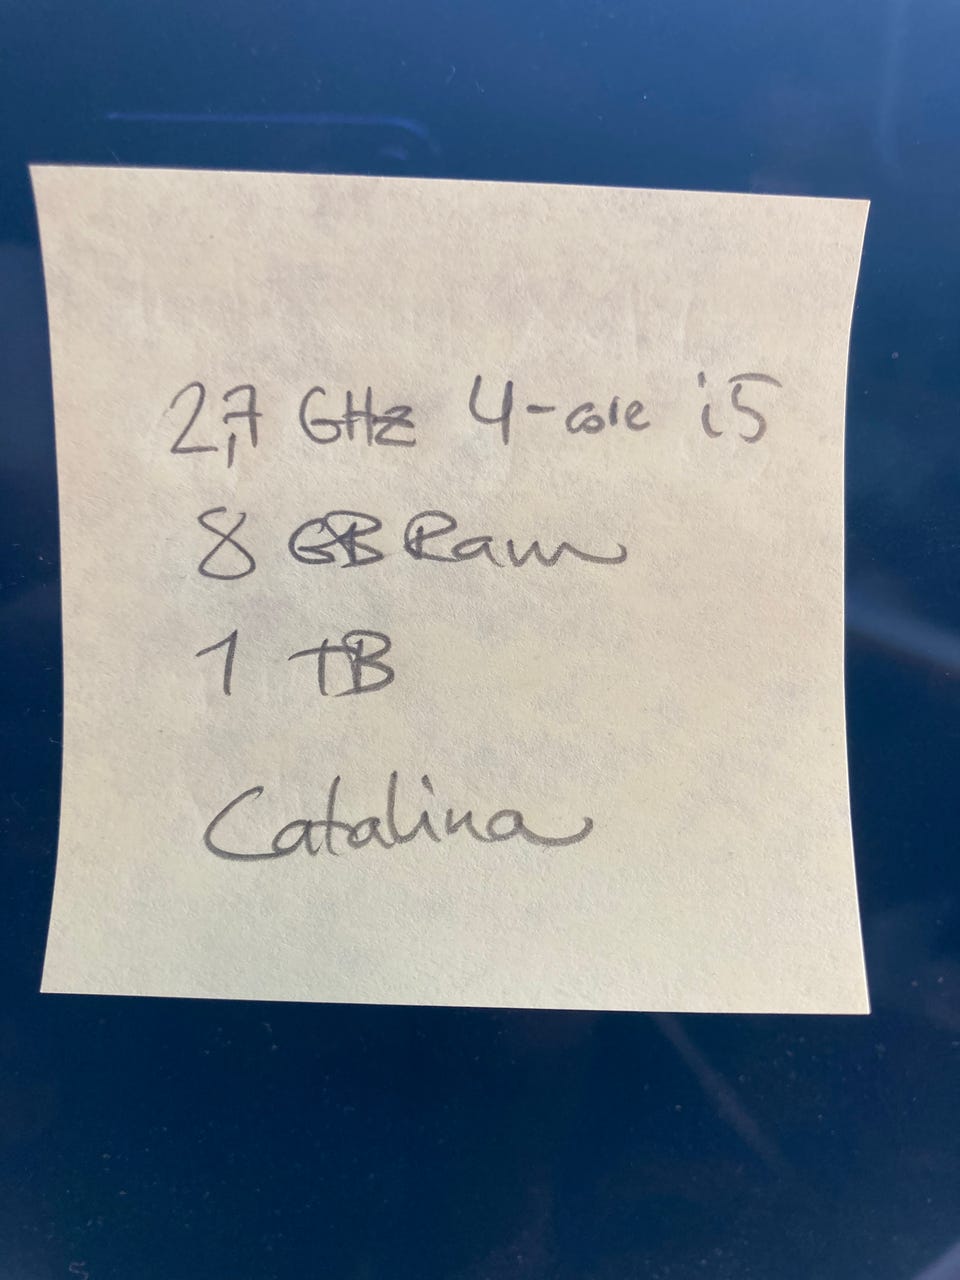 2,7 GHz 4-core i5
8 GB Ram
1 TB
Catalina